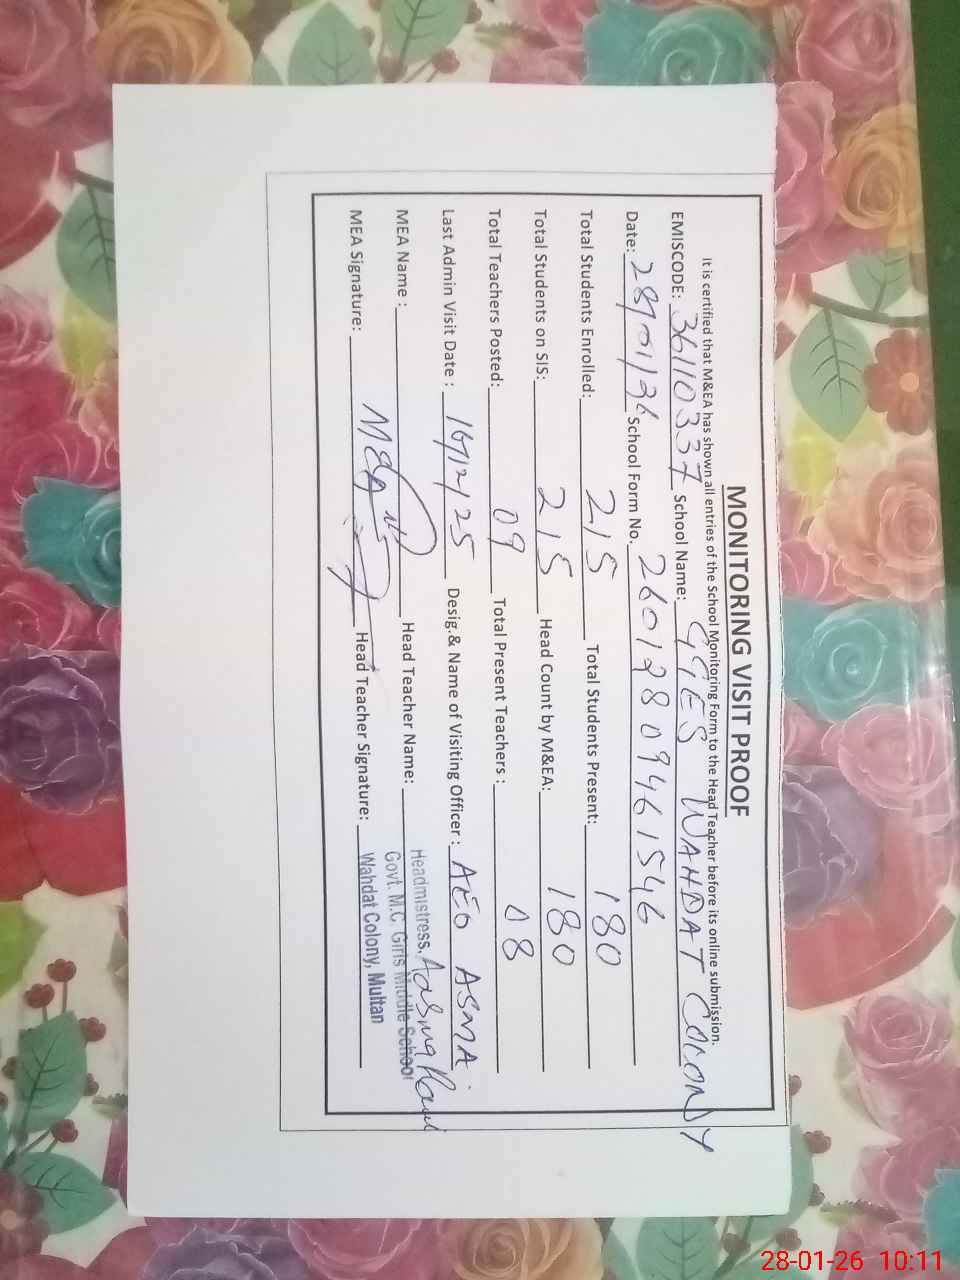 MONITORING VISIT PROOF
It is certified that M&EA has shown all entries of the School Monitoring Form to the Head Teacher before its online submission.
EMISCODE: 36110337 School Name: GGES WAHDAT COLONY
Date: 28/01/36 School Form No. 26012809461546
Total Students Enrolled: 215 Total Students Present: 180
Total Students on SIS: 215 Head Count by M&EA: 180
Total Teachers Posted: 09 Total Present Teachers : 08
Last Admin Visit Date : 16/12/25 Desig.& Name of Visiting Officer : AEO ASMA
MEA Name : Head Teacher Name:
MEA Signature: MEA Head Teacher Signature:
Headmistress,
Govt. M.C. Girls Middle School
Wahdat Colony, Multan
28-01-26 10:11